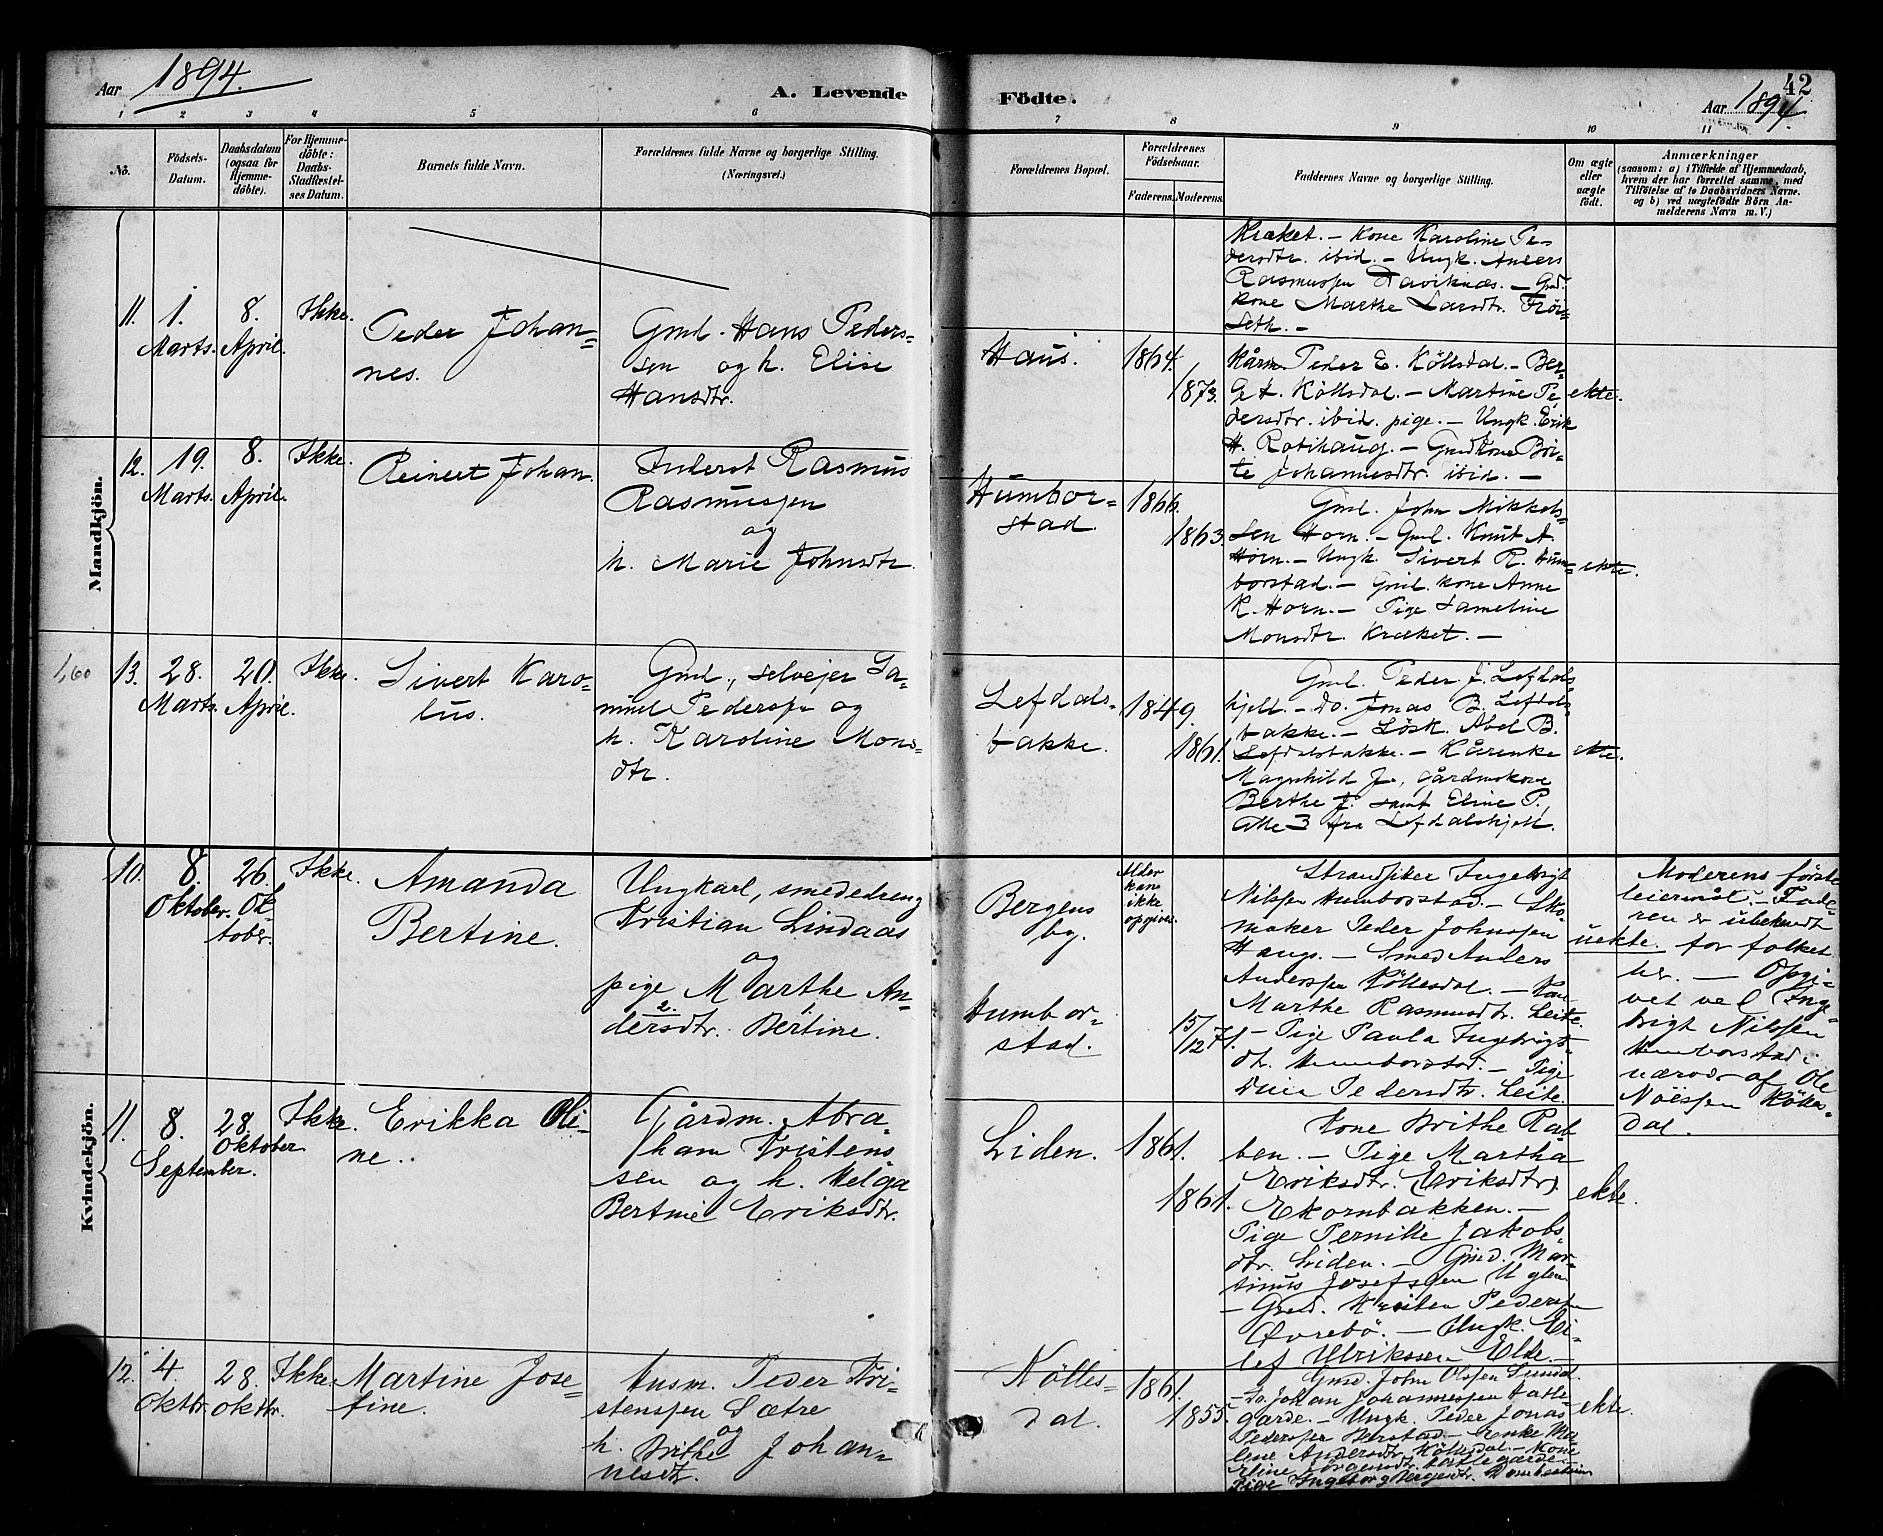 Aar 1894.
A. Levende
Födte.
42
Aar 1894.
1 2 3 4 5 6 7 8 9 10 11
No.
Födsels-Datum.
Daabsdatum (ogsaa for Hjemme-döbte).
For Hjemme-döbte: Daabs-Stadfæstel-ses Datum.
Barnets fulde Navn.
Forældrenes fulde Navne og borgerlige Stilling. (Næringsvei.)
Forældrenes Bopæl.
Forældrenes Födselsaar.
Faderens. Moderens.
Faddernes Navne og borgerlige Stilling.
Om ægte eller uægte födt.
Anmærkninger
(saasom: a) i Tilfælde af Hjemmedaab,
hvem der har forrettet samme, med
Tilföielse af to Daabsvidners Navne,
og b) ved uægtefödte Börn An-
melderens Navn m. V.)
Mandkjön.
Kræket. – Kone Karoline Pe-
dersdtr. ibid. – Ungk. Anders
Rasmussen Daviknæs. – Gmd.
kone Marthe Larsdtr. Frøi-
seth. –
11.
1.
Marts.
8.
April.
Ikke.
Peder Johan-
nes.
Gml. Hans Peders-
sen og h. Elise
Hansdtr.
Haus.
1864.
1873.
Kårm. Peder E. Köllsdal. – Ber-
G t. Köllsdal. – Martine Pe-
dersdtr. ibid. pige. – Ungk. Erik
H. Rotihaug. – Gmdkone Bri-
te Johannesdtr. ibid. –
ekte.
12.
19.
Marts.
8.
April.
Ikke.
Reinert Johan.
Inderst Rasmus
Rasmussen
og
h. Marie Johnsdtr.
Humbor-
stad.
1866.
1863.
Gml. John Mikkels-
sen Horn. – Gml. Knut A.
Horn. – Ungk. Sivert R. Hum-
borstad. – Gml. kone Anne
K. Horn. – Pige Lameline
Monsdtr. Kræket. –
ekte.
1,60
13.
28.
Marts.
20.
April.
Ikke.
Sivert Karo-
lus.
Gml., selvejer Sa-
muel Pederssen og
h. Karoline Mons-
dtr.
Lefdals-
bakke.
1849.
1861.
Gml. Peder J. Lefdals-
hjell. – Do. Jonas B. Lefdals-
bakke. – Lösk. Abel B.
Lefdalsbakke. – Kårenke
Magnhild J., gårdmskone
Berthe J. samt Eline P.,
alle 3 fra Lefdalshjell.
ekte.
Kvindekjön.
10.
8.
Oktober.
26.
Ok-
tober.
Ikke.
Amanda
Bertine.
Ungkarl, smededreng
Kristian Lindaas
og
pige Marthe An-
2.
dersdtr. Bertine.
Bergens
by.
Humbor-
stad.
Alder
kan
ikke
opgives.
15/12 71.
Strandsitter Ingebrigt
Nilssen Humborstad. – Sko-
maker Peder Johnssen
Haugs. – Smed Anders
Anderssen Köllesdal. – Kone
Marthe Rasmusdtr. Leite.
– Pige Paula Ingebrigts-
dtr. Humborstad. – Pige
Dina Pedersdtr. Leite.
uekte.
Moderens förste
leiermål. – Fade-
ren er ubekendt
for folket
her. – Opgi-
vet ved Inge-
brigt Nilssen
Humborstad i
nærvær af Ole
Nöessen Kölles-
dal.
11.
8.
September.
28.
Oktober.
Ikke.
Erikka Oli-
ne.
Gårdm. Abra-
ham Kristens-
sen og h. Helga
Bertine Eriksdtr.
Liden.
1861.
1861.
Kone Brithe Rab-
ben. – Pige Martha
Eriksdtr. (Eriksdtr)
Ekornbakken. –
Pige Pernille Jakobs-
dtr. Liden. – Gmd. Mar-
tinus Josefssen Uglen
– Gmd. Kristen Pederssen
Øvrebö. – Ungk. Ei-
lef Ulrikssen Elde. –
ekte.
12.
4.
Oktbr.
28.
Oktbr.
Ikke.
Martine Jose-
fine.
Husm. Peder Kri-
stenssen Sætre
og
h. Brithe Johan-
nesdtr.
Kölles-
dal.
1861.
1855.
Gmd. John Olssen Lundal
– Do. Johan Johannessen Lutle-
garde. – Ungk. Peder Jonas
Pederssen Berstad. – Enke Ma-
lene Andersdtr. Köllsdal. – Kone
Eline Jörgensdtr. Lutlegarde.
Pige Ingeborg Börgesdtr. Dombestein
ekte.